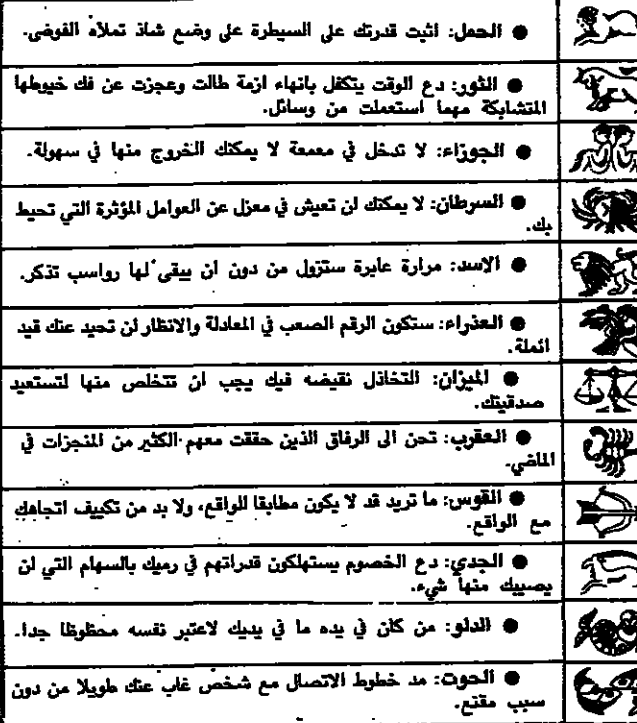 ● الحمل: اثبت قدرتك على السيطرة على وضع شاذ تملأه الفوضى.
● الثور: دع الوقت يتكفل بانهاء ازمة طالت وعجزت عن فك خيوطها
المتشابكة مهما استعملت من وسائل.
● الجوزاء: لا تدخل في معمعة لا يمكنك الخروج منها في سهولة.
● السرطان: لا يمكنك ان تعيش في معزل عن العوامل المؤثرة التي تحيط
بك.
● الاسد: مرارة عابرة ستزول من دون ان يبقى لها رواسب تذكر.
● العذراء: ستكون الرقم الصعب في المعادلة والانظار لن تحيد عنك قيد
انملة.
● الميزان: التخاذل نقيضه فيك يجب ان تتخلص منها لتستعيد
صدقيتك.
● العقرب: تحن الى الرفاق الذين حققت معهم الكثير من المنجزات في
الماضي.
● القوس: ما تريد قد لا يكون مطابقا للواقع، ولا بد من تكييف اتجاهك
مع الواقع.
● الجدي: دع الخصوم يستهلكون قدراتهم في رميك بالسهام التي لن
يصيبك منها شيء.
● الدلو: من كان في يده ما في يديك لاعتبر نفسه محظوظا جدا.
● الحوت: مد خطوط الاتصال مع شخص غاب عنك طويلا من دون
سبب مقنع.